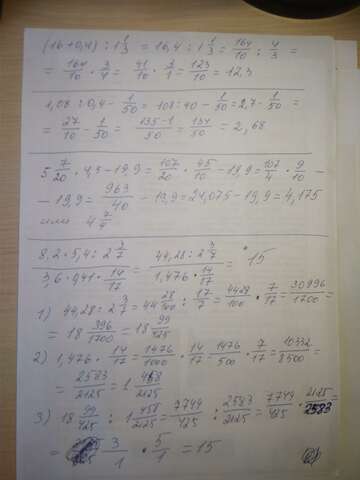 (16+0,4) : 1 1/3 = 16,4 : 1 1/3 = 164/10 : 4/3 =
= 164/10 · 3/4 = 41/10 · 3/1 = 123/10 = 12,3
1,08 : 0,4 - 1/50 = 108 : 40 - 1/50 = 2,7 - 1/50 =
= 27/10 - 1/50 = 135-1/50 = 134/50 = 2,68
5 7/20 · 4,5 - 19,9 = 107/20 · 45/10 - 19,9 = 107/4 · 9/10 -
- 19,9 = 963/40 - 19,9 = 24,075 - 19,9 = 4,175
или 4 7/4
8,2 · 5,4 : 2 3/7 / 3,6 · 0,41 · 14/17 = 44,28 : 2 3/7 / 1,476 · 14/17 = 15
1) 44,28 : 2 3/7 = 44 28/100 : 17/7 = 4428/100 · 7/17 = 30996/1700 =
= 18 396/1700 = 18 99/425
2) 1,476 · 14/17 = 1476/1000 · 14/17 1476/500 · 7/17 = 10332/8500 =
= 2583/2125 = 1 458/2125
3) 18 99/425 : 1 458/2125 = 7749/425 : 2583/2125 = 7749/425 · 2125/2583
= 3/1 · 5/1 = 15